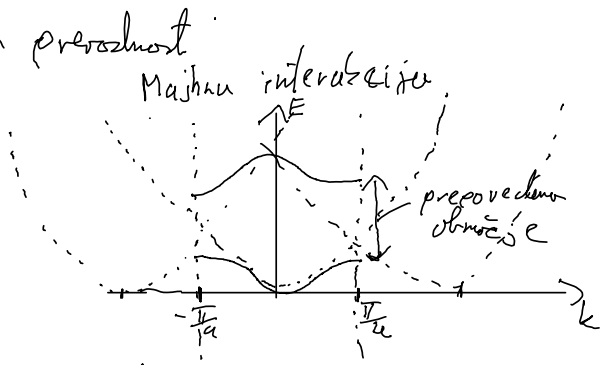 prevodnost
Majhna interakcija
E
prepovedano
območje
-π/a
π/a
k